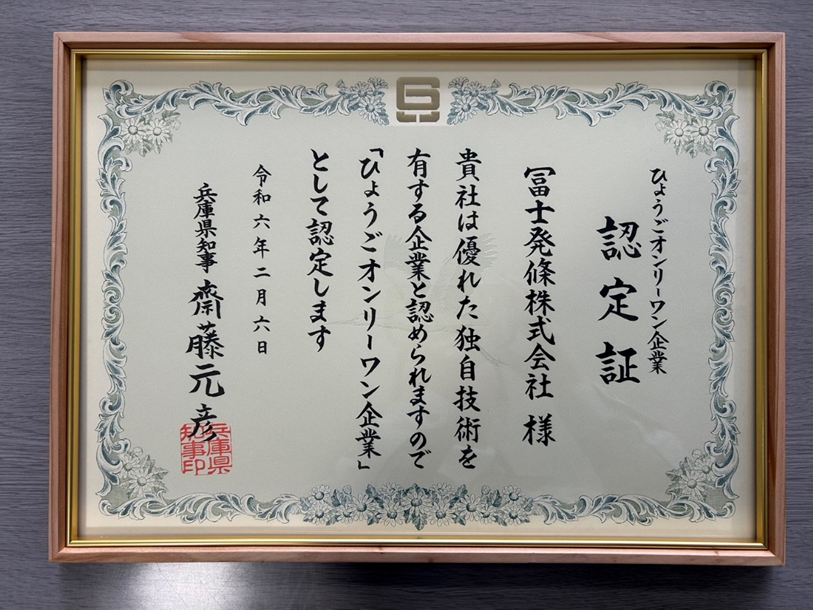 ひょうごオンリーワン企業
認定証
冨士発條株式会社 様
貴社は優れた独自技術を
有する企業と認められますので
「ひょうごオンリーワン企業」
として認定します
令和六年二月六日
兵庫県知事 齋藤元彦
兵庫県
知事印